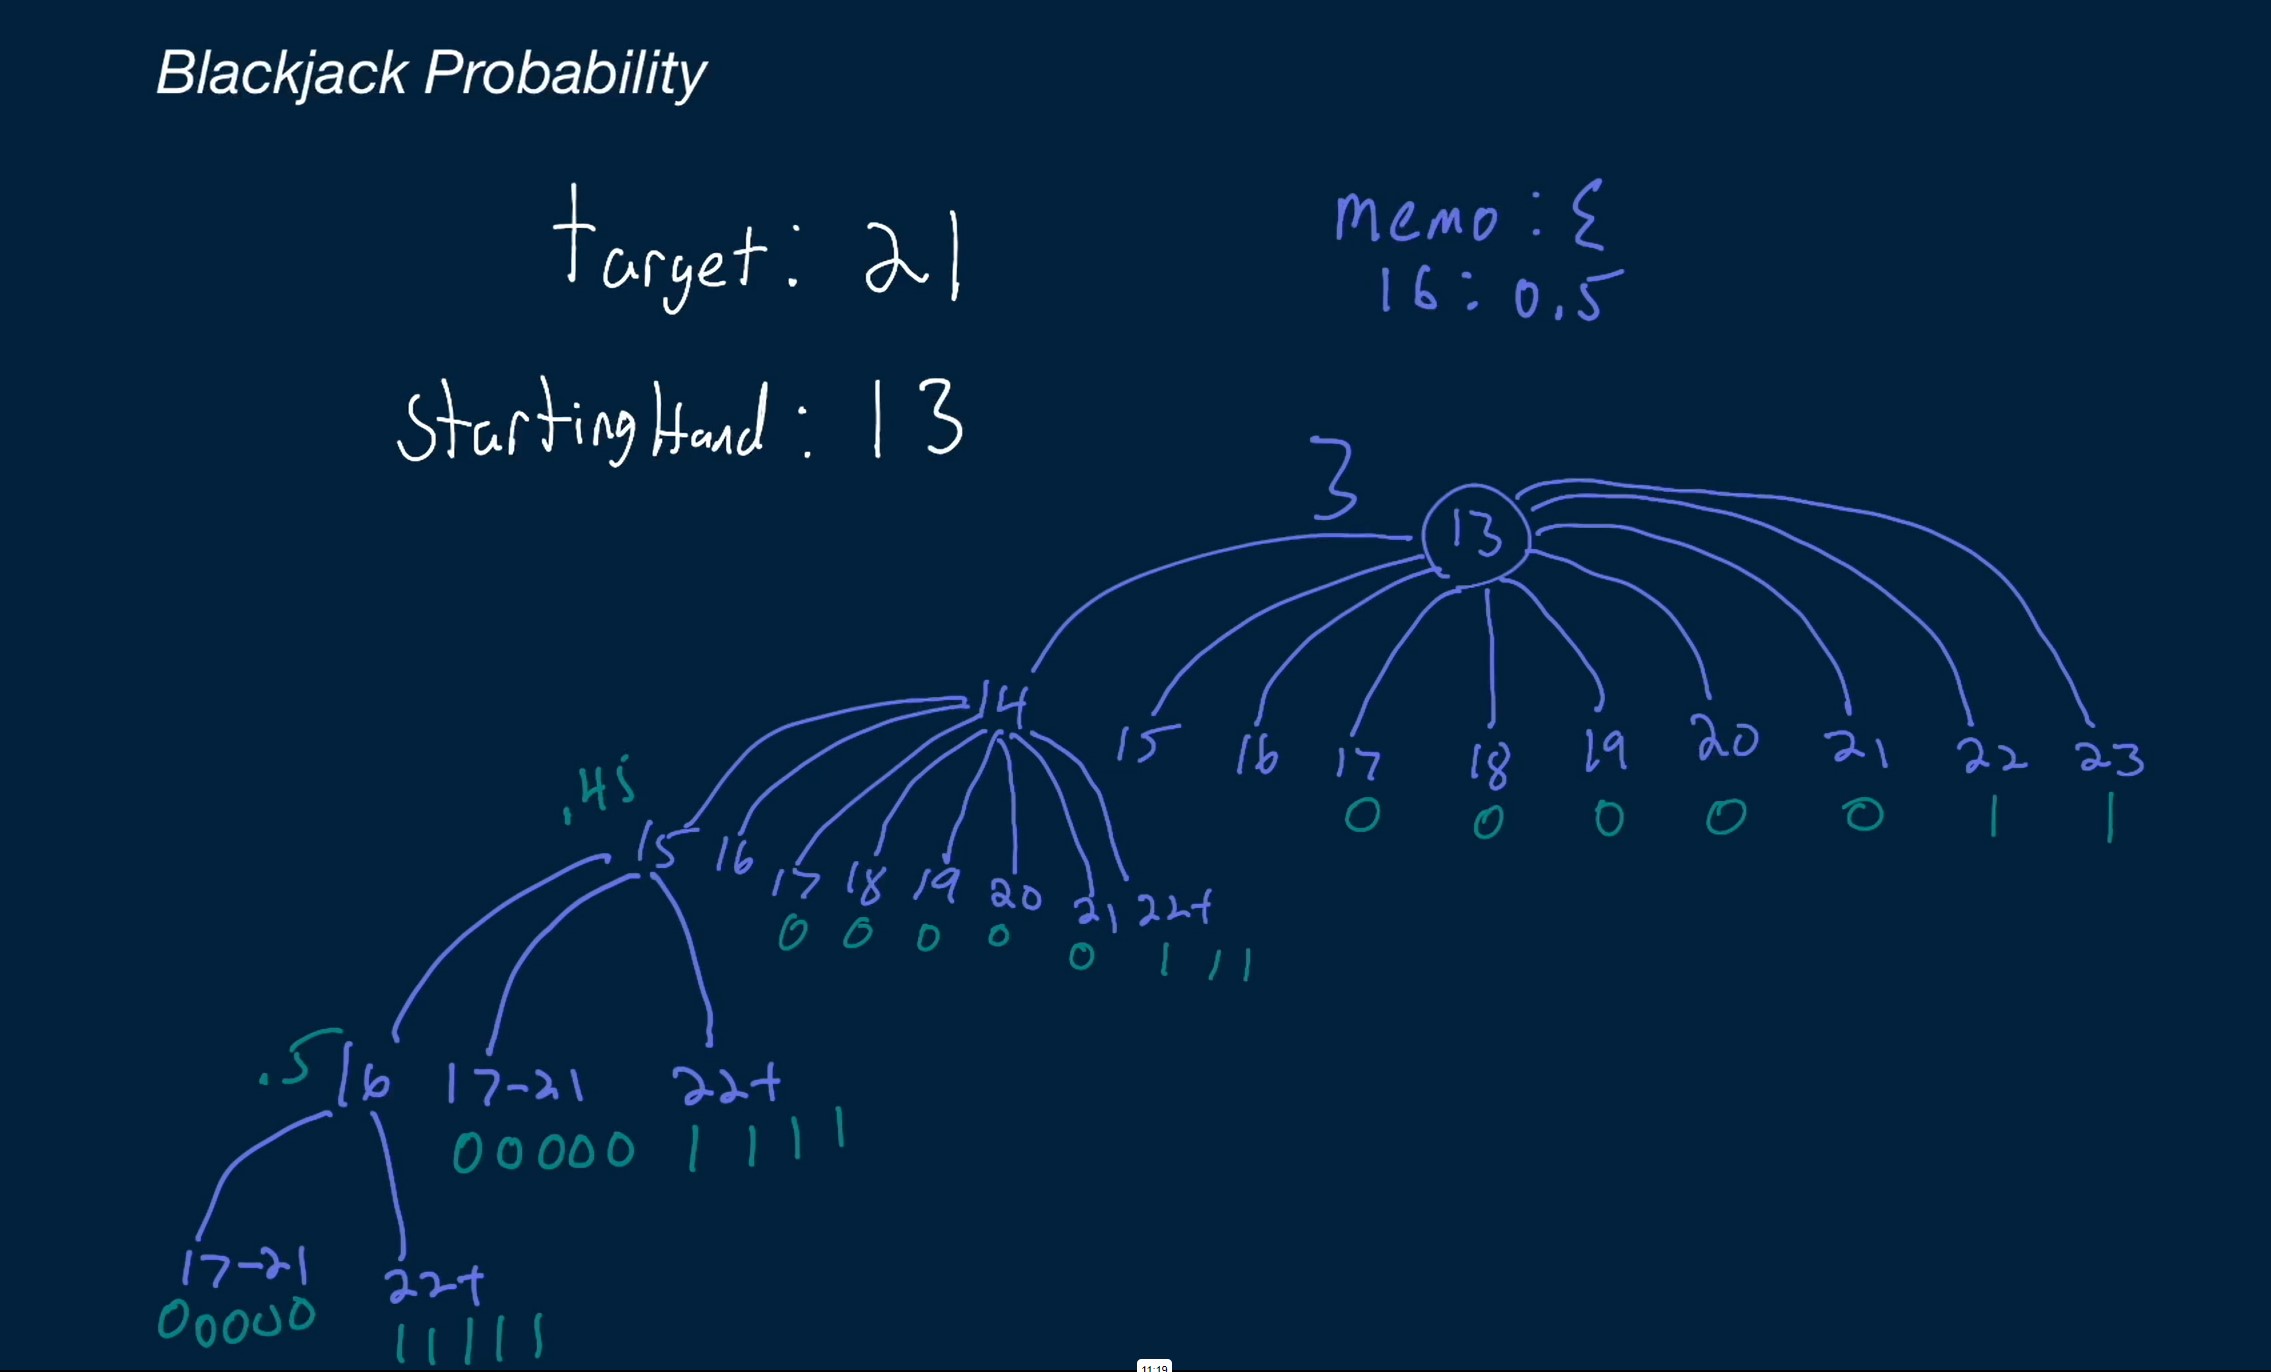 Blackjack Probability
target: 21
memo: {
16: 0.5
startingHand: 13
3
13
14
15 16 17 18 19 20 21 22 23
0 0 0 0 0 1 1
.45
15 16 17 18 19 20 21 22+
0 0 0 0 0 1 1 1
.5 16 17-21 22+
0 0 0 0 0 1 1 1 1
17-21 22+
0 0 0 0 0 1 1 1 1 1
11:19